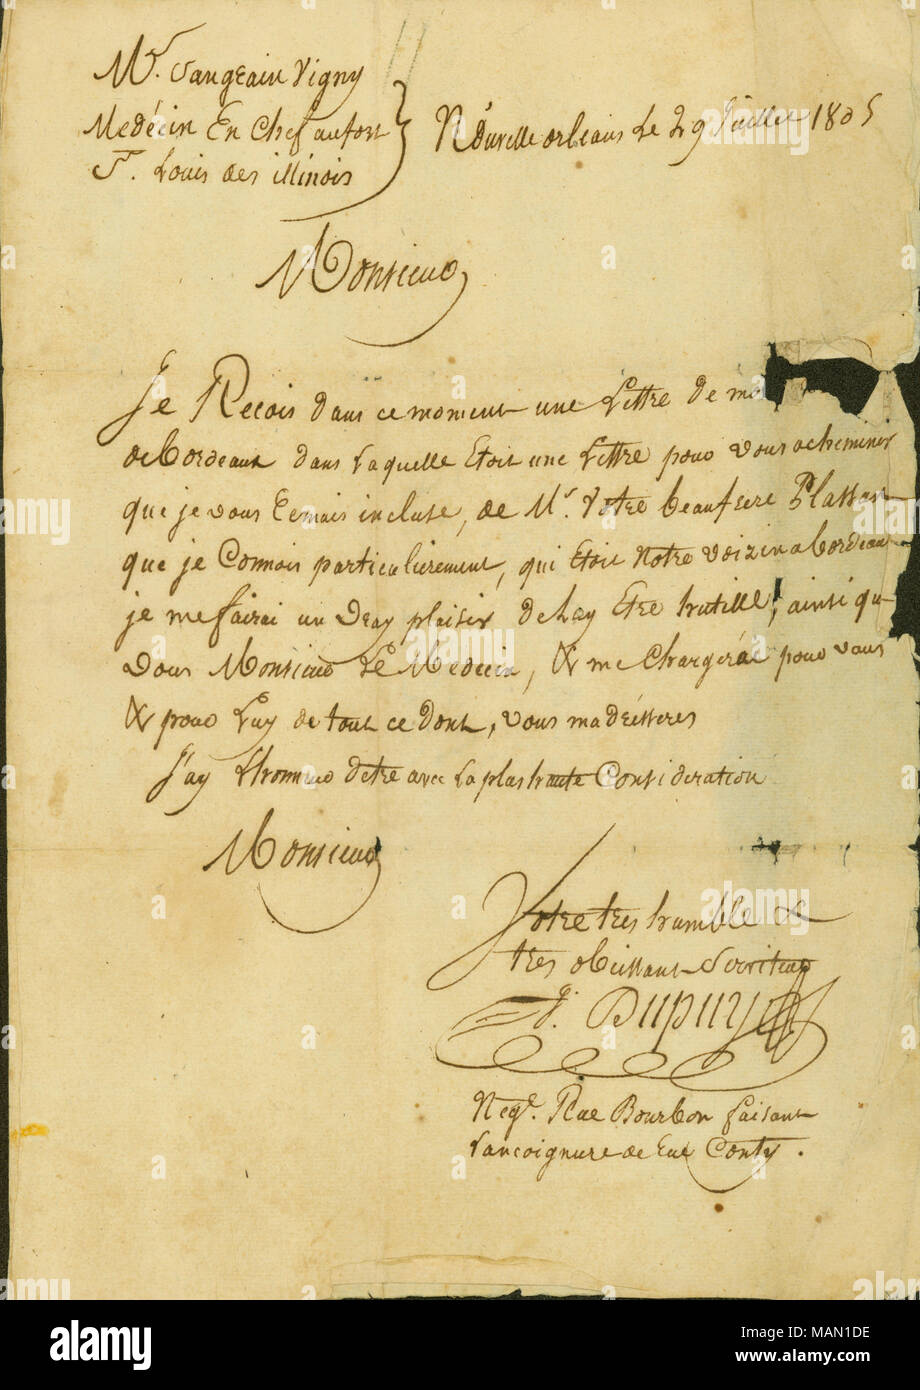 Mr. Saugrain Vigny
Medécin En Chef au fort
St. Louis des illinois
Nouvelle orleans Le 29 Juillet 1805
Monsieur
Je Recois dans ce moment une Lettre de ma
de Bordeaux dans Laquelle Etoit une Lettre pour vous acheminer
que je vous Remais incluse, de Mr. Votre beaufrere Plassan
que je Connois particulierement, qui Etoit Notre voizin a bordeau
je me fairai un vray plaisir de Luy Etre hutille, ainsi qu
vous Monsieur Le Medecin, & me Chargerai pour vous
& pour Luy de tout ce dont, vous madrésseres
J'ay Lhonneur detre avec La plus haute Consideration
Monsieur
Votre tres humble &
tres obeissant Serviteur
J. Dupuy
Negt. Rue Bourbon faisant
Lancoignure de Rue Conty.
alamy
MAN1DE
www.alamy.com